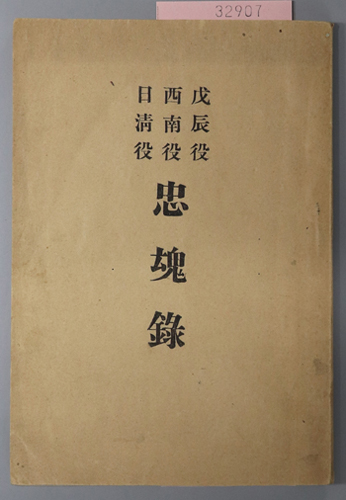 32907
戊辰役
西南役
日清役
忠魂錄